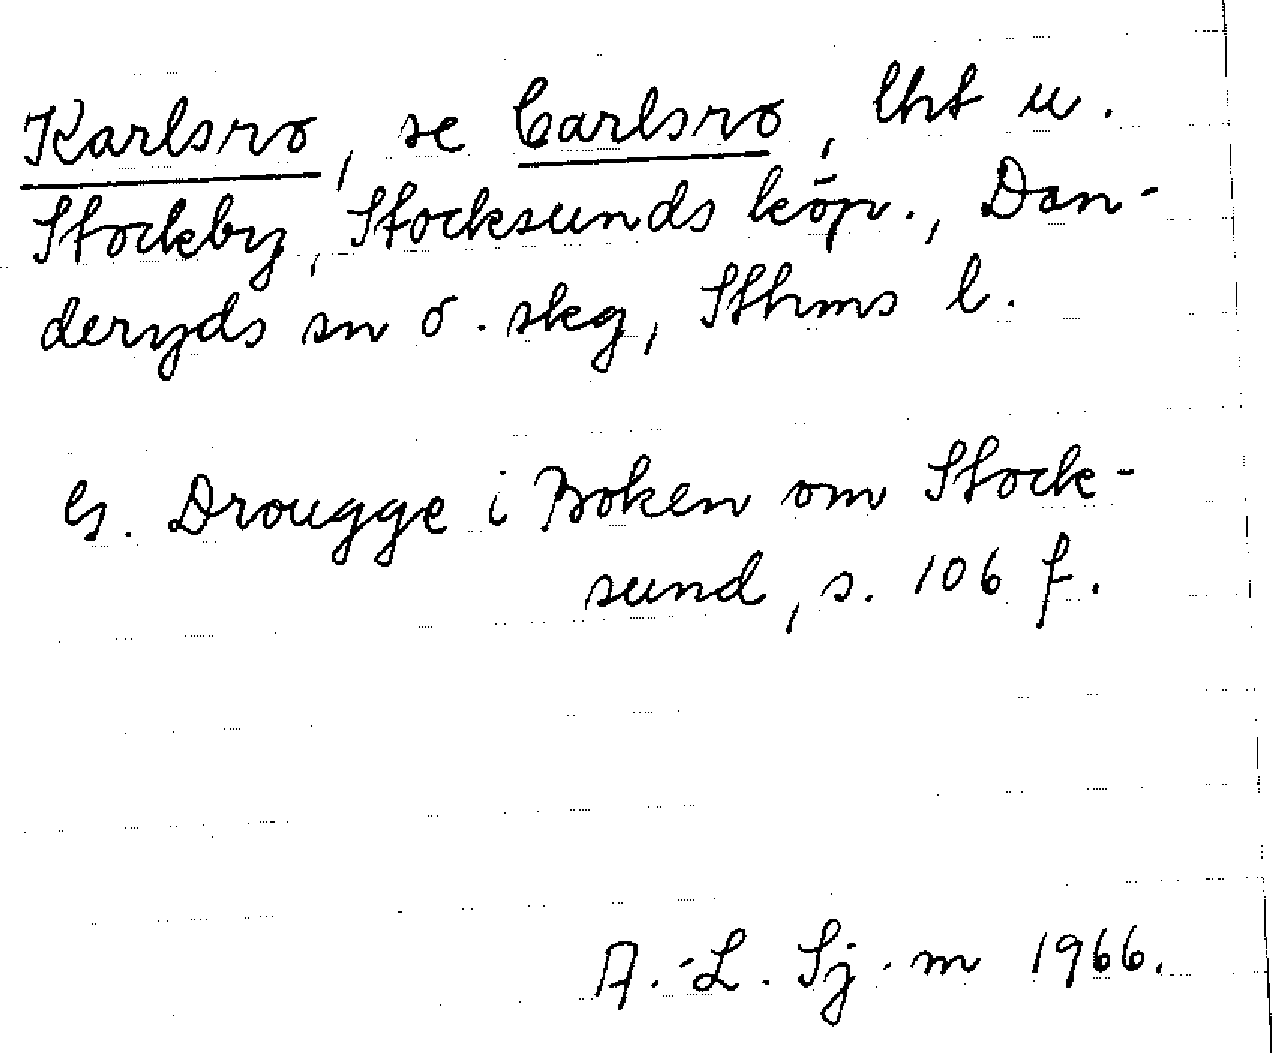 Karlsro, se Carlsro, lht u.
Stockby, Stocksunds köp., Dan-
deryds sn o. skg, Sthms l.
G. Drougge i Boken om Stock-
sund, s. 106 f.
A.-L. Sj-m 1966.